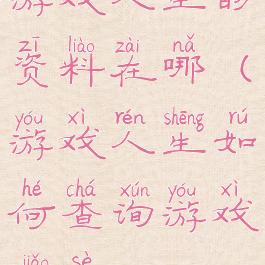 游戏人生的
zī liào zài nǎ
资料在哪（
yóu xì rén shēng rú
游戏人生如
hé chá xún yóu xì
何查询游戏
jiǎo sè